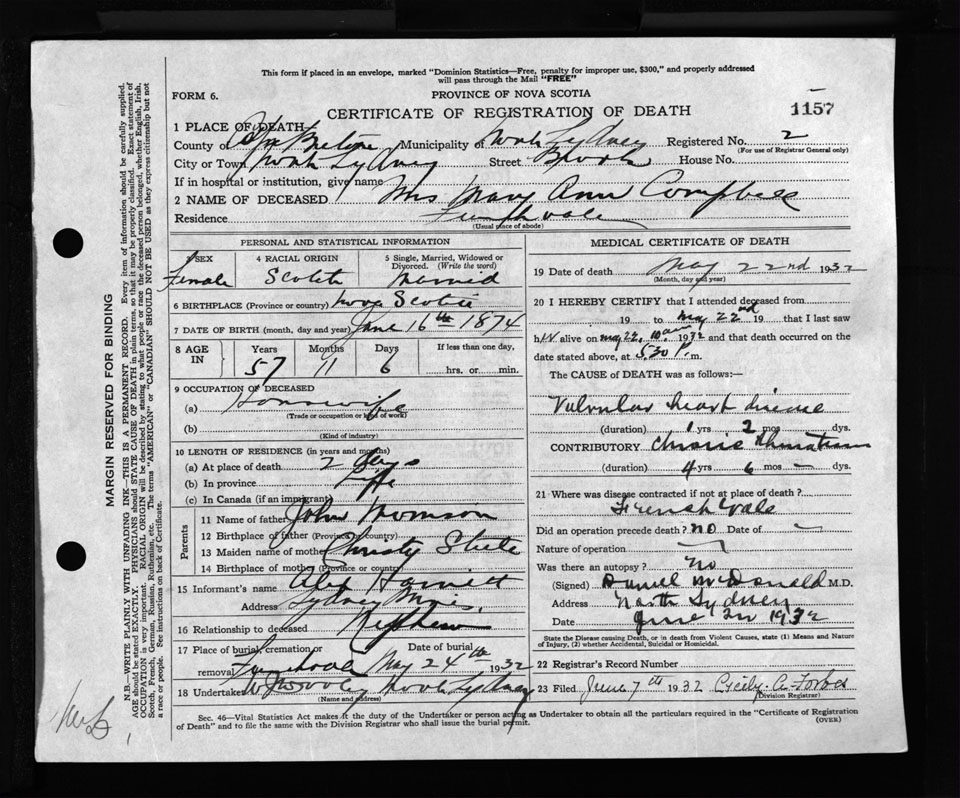 This form if placed in an envelope, marked "Dominion Statistics—Free, penalty for improper use, $300," and properly addressed
will pass through the Mail "FREE"
FORM 6.
PROVINCE OF NOVA SCOTIA
CERTIFICATE OF REGISTRATION OF DEATH
1157
1 PLACE OF DEATH
County of Cape Breton Municipality of North Sydney Registered No. 2
(For use of Registrar General only)
City or Town North Sydney Street Brook House No.
If in hospital or institution, give name
2 NAME OF DECEASED Mrs Mary Ann Campbell
Residence
(Usual place of abode)
PERSONAL AND STATISTICAL INFORMATION
3 SEX Female
4 RACIAL ORIGIN Scotch
5 Single, Married, Widowed or Divorced. (Write the word) Married
6 BIRTHPLACE (Province or country) Nova Scotia
7 DATE OF BIRTH (month, day and year) June 16th 1874
8 AGE IN Years 57 Months 11 Days 6 If less than one day, hrs. or min.
9 OCCUPATION OF DECEASED
(a) Housewife
(Trade or occupation or kind of work)
(b)
(Kind of industry)
10 LENGTH OF RESIDENCE (in years and months)
(a) At place of death 2 days
(b) In province Life
(c) In Canada (if an immigrant)
Parents
11 Name of father John
12 Birthplace of father (Province or country)
13 Maiden name of mother Christy
14 Birthplace of mother (Province or country)
15 Informant's name Alex
Address Sydney Mines.
16 Relationship to deceased Nephew
17 Place of burial, cremation or removal Date of burial May 24th 1932
18 Undertaker North Sydney
(Name and address)
MEDICAL CERTIFICATE OF DEATH
19 Date of death May 22nd 1932
(Month, day and year)
20 I HEREBY CERTIFY that I attended deceased from
19 to May 22nd 19 that I last saw
h alive on May 22, 10 am 1932 and that death occurred on the
date stated above, at 530 P.m.
The CAUSE of DEATH was as follows:—
Valvular heart disease
(duration) 1 yrs 2 mos dys.
CONTRIBUTORY Chronic Rheumatism
(duration) 4 yrs 6 mos — dys.
21 Where was disease contracted if not at place of death?
French Vale
Did an operation precede death? no Date of —
Nature of operation
Was there an autopsy? No
(Signed) Daniel McDonald M.D.
Address North Sydney
Date June 1932
State the Disease causing Death, or in death from Violent Causes, state (1) Means and Nature
of Injury, (2) whether Accidental, Suicidal or Homicidal.
22 Registrar's Record Number
23 Filed June 7th 1932 Cecily A. Forbes
(Division Registrar)
Sec. 46—Vital Statistics Act makes it the duty of the Undertaker or person acting as Undertaker to obtain all the particulars required in the "Certificate of Registration
of Death" and to file the same with the Division Registrar who shall issue the burial permit.
(OVER)
MARGIN RESERVED FOR BINDING
N.B.—WRITE PLAINLY WITH UNFADING INK—THIS IS A PERMANENT RECORD. Every item of information should be carefully supplied.
AGE should be stated EXACTLY. PHYSICIANS should STATE CAUSE OF DEATH in plain terms, so that it may be properly classified. Exact statement of
OCCUPATION is very important. RACIAL ORIGIN will be described by stating to what people or race the deceased person belonged, whether English, Irish,
Scotch, French, German, Russian, Ruthenian, etc. The terms "AMERICAN" or "CANADIAN" SHOULD NOT BE USED as they express citizenship but not
a race or people. See instructions on back of Certificate.